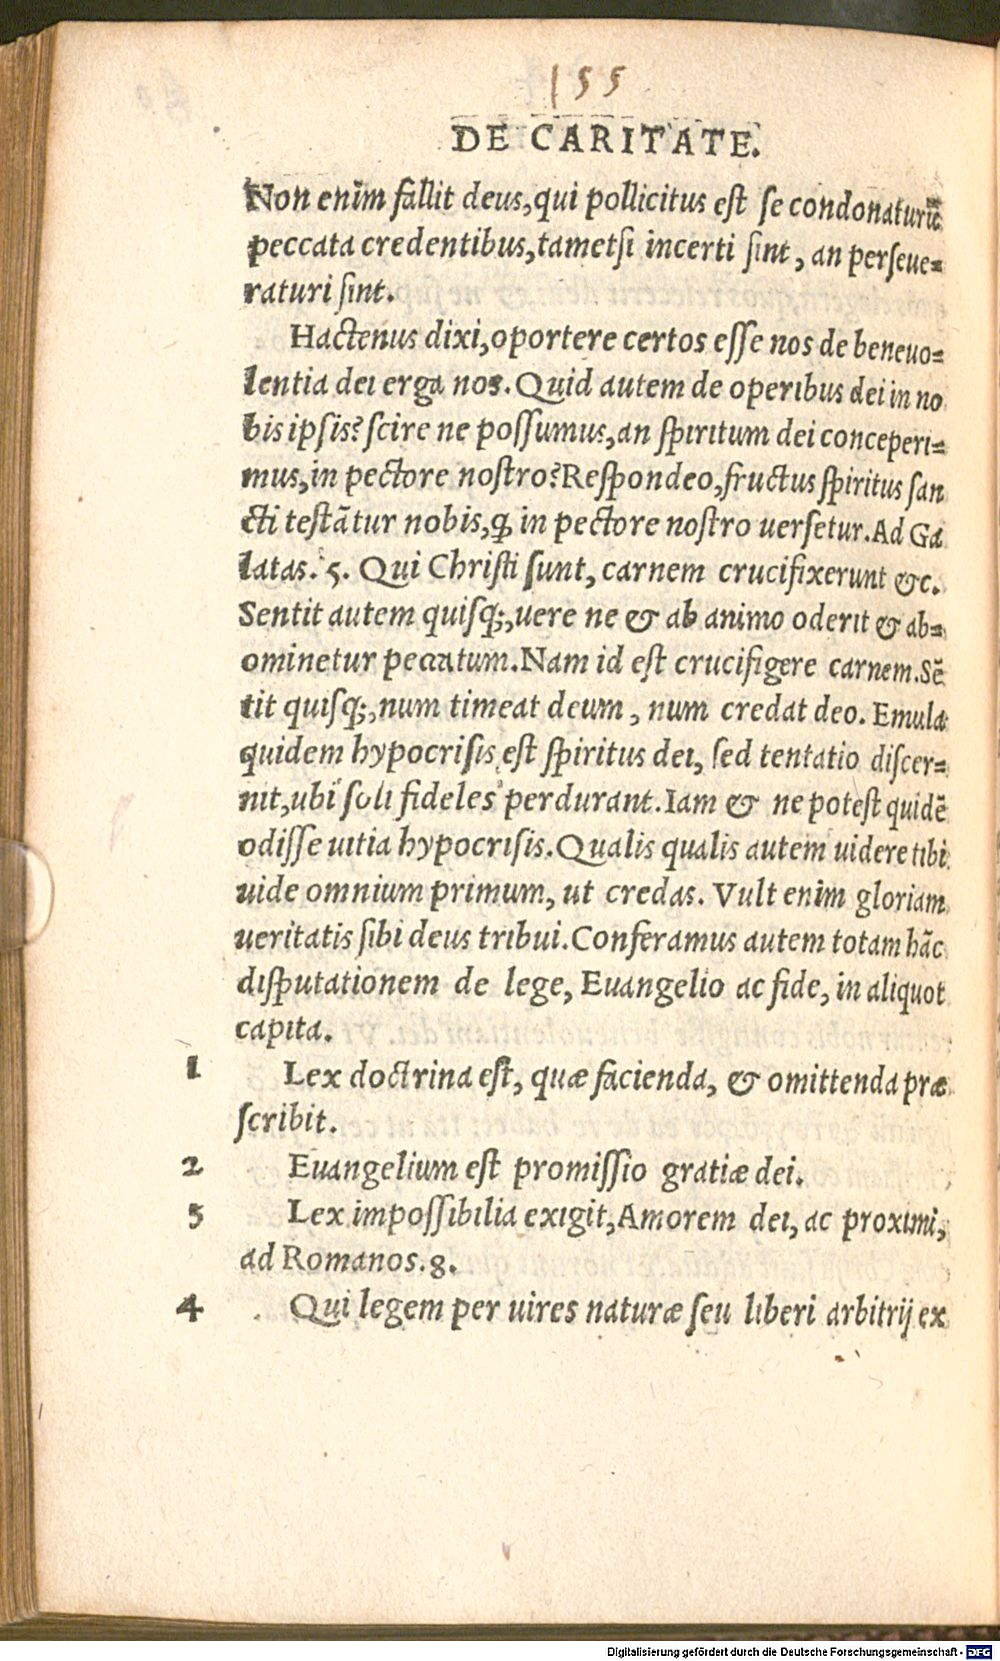 155
DE CARITATE.
Non enim fallit deus, qui pollicitus est se condonaturũ
peccata credentibus, tametsi incerti sint, an perseue-
raturi sint.
Hactenus dixi, oportere certos esse nos de beneuo-
lentia dei erga nos. Quid autem de operibus dei in no
bis ipsis? scire ne possumus, an spiritum dei conceperi-
mus, in pectore nostro? Respondeo, fructus spiritus san
cti testãtur nobis, ꝙ in pectore nostro uersetur. Ad Ga
latas. 5. Qui Christi sunt, carnem crucifixerunt &c.
Sentit autem quisq;, uere ne & ab animo oderit & ab-
ominetur peccatum. Nam id est crucifigere carnem. Sẽ
tit quisq;, num timeat deum, num credat deo. Emula
quidem hypocrisis est spiritus dei, sed tentatio discer-
nit, ubi soli fideles perdurant. Iam & ne potest quidẽ
odisse uitia hypocrisis. Qualis qualis autem uidere tibi
uide omnium primum, ut credas. Vult enim gloriam
ueritatis sibi deus tribui. Conferamus autem totam hãc
disputationem de lege, Euangelio ac fide, in aliquot
capita.
1 Lex doctrina est, quæ facienda, & omittenda præ
scribit.
2 Euangelium est promissio gratiæ dei.
3 Lex impossibilia exigit, Amorem dei, ac proximi,
ad Romanos. 8.
4 Qui legem per uires naturæ seu liberi arbitrij ex
Digitalisierung gefördert durch die Deutsche Forschungsgemeinschaft - DFG